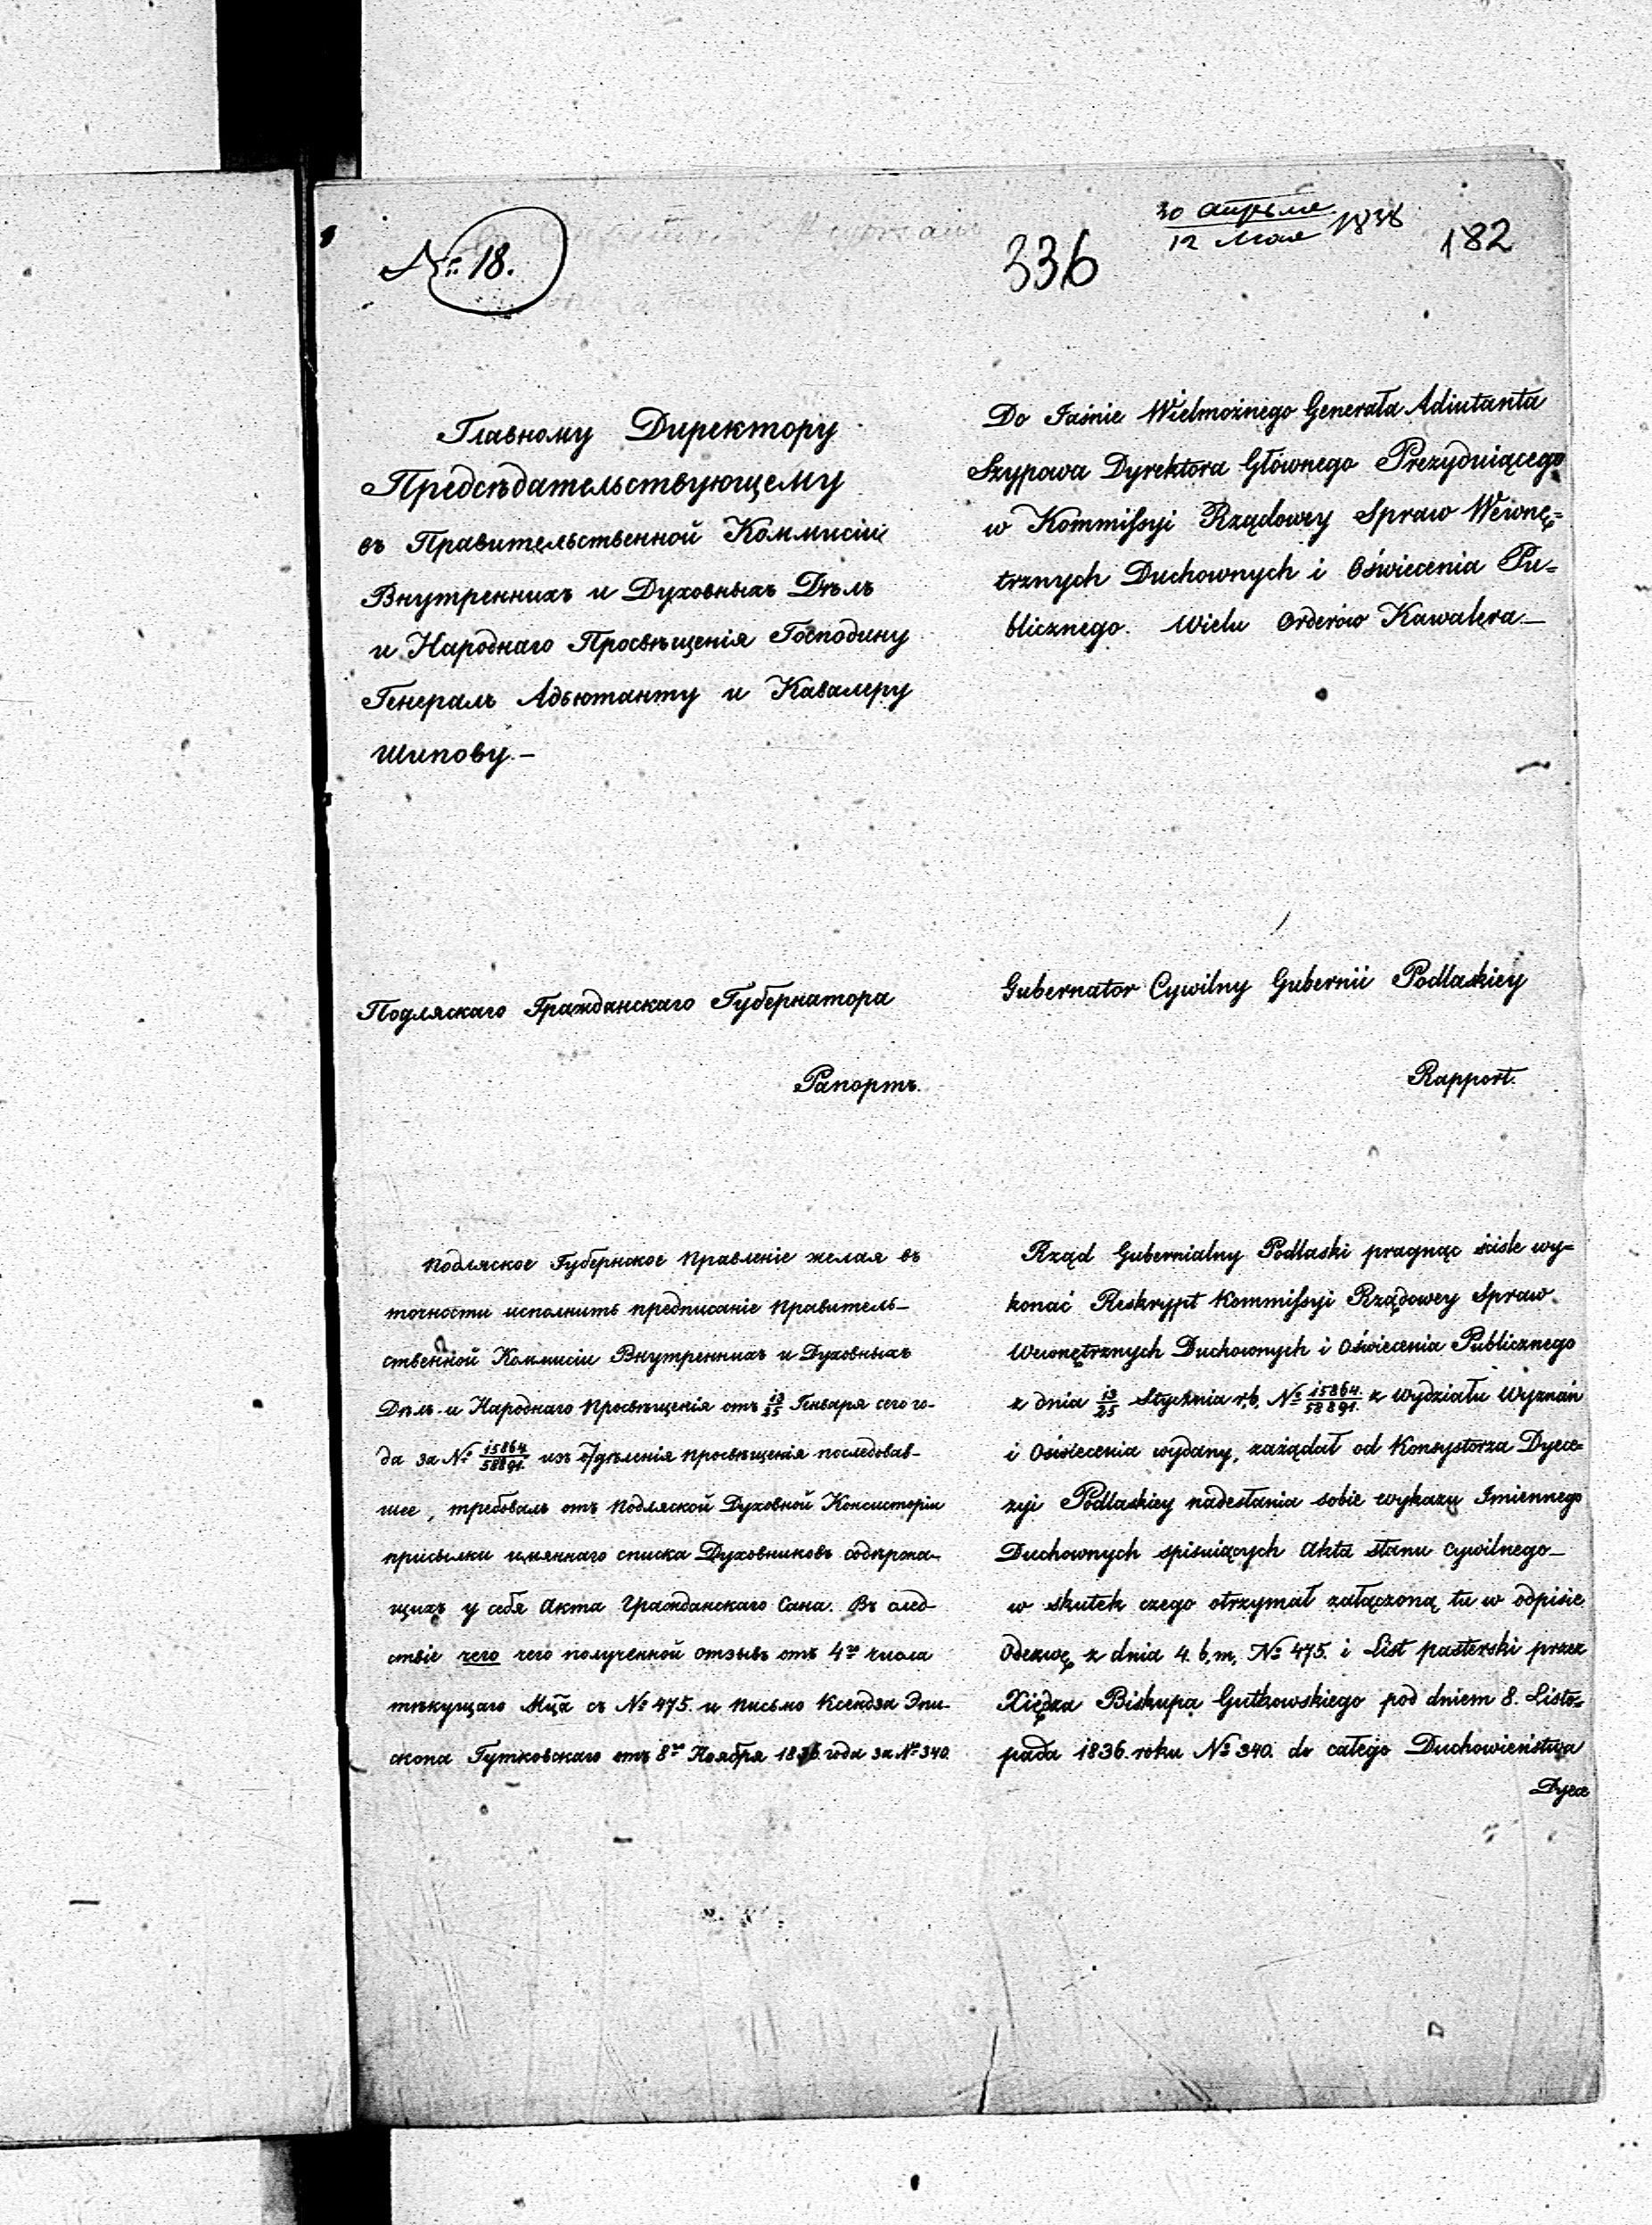 № 18.
336
30 Апрѣля
12 Мая 1838
182
Главному Директору
Предсѣдательствующему
въ Правительственной Коммисіи
Внутреннихъ и Духовныхъ Дѣлъ
и Народнаго Просвѣщенія Господину
Генералъ Адъютанту и Кавалеру
Шипову.—
Подляскаго Гражданскаго Губернатора
Рапортъ.
Подляское Губернское Правленіе желая въ
точности исполнить предписаніе Правитель-
ственной Коммисіи Внутреннихъ и Духовныхъ
Дѣлъ и Народнаго Просвѣщенія отъ 13/25 Генваря сего го-
да за № 15864/58891. изъ Отдѣленія просвѣщенія последовав-
шее, требовалъ отъ Подляской Духовной Консисторіи
присылки имяннаго списка Духовниковъ содѣржа-
щихъ у себя Акта Гражданскаго Сана. Въ след-
ствіе чего чего полученной отзывъ отъ 4го числа
тѣкущаго Мца съ № 475. и письмо Ксендза Эпи-
скопа Гутковскаго отъ 8го Ноября 1836 года за № 340.
Do Jaśnie Wielmożnego Generała Adiutanta
Szypowa Dyrektora Głównego Prezyduiącego
w Kommissyi Rządowey Spraw Wewnę=
trznych Duchownych i Oświecenia Pu=
blicznego. Wielu Orderów Kawalera.—
Gubernator Cywilny Gubernii Podlaskiey
Rapport.
Rząd Gubernialny Podlaski pragnąc ściśle wy=
konać Reskrypt Kommissyi Rządowey Spraw
Wewnętrznych Duchownych i Oświecenia Publicznego
z dnia 13/25 Stycznia r.b. № 15864/58891. z Wydziału Wyznań
i Oświecenia wydany, zażądał od Konsystorza Dyece=
zyi Podlaskiey nadesłania sobie wykazu Imiennego
Duchownych spisuiących Akta stanu cywilnego—
w skutek czego otrzymał załączoną tu w odpisie
Odezwę z dnia 4. b.m. № 475. i List pasterski przez
Xiędza Biskupa Gutkowskiego pod dniem 8. Listo=
pada 1836. roku № 340. do całego Duchowieństwa
Dyece